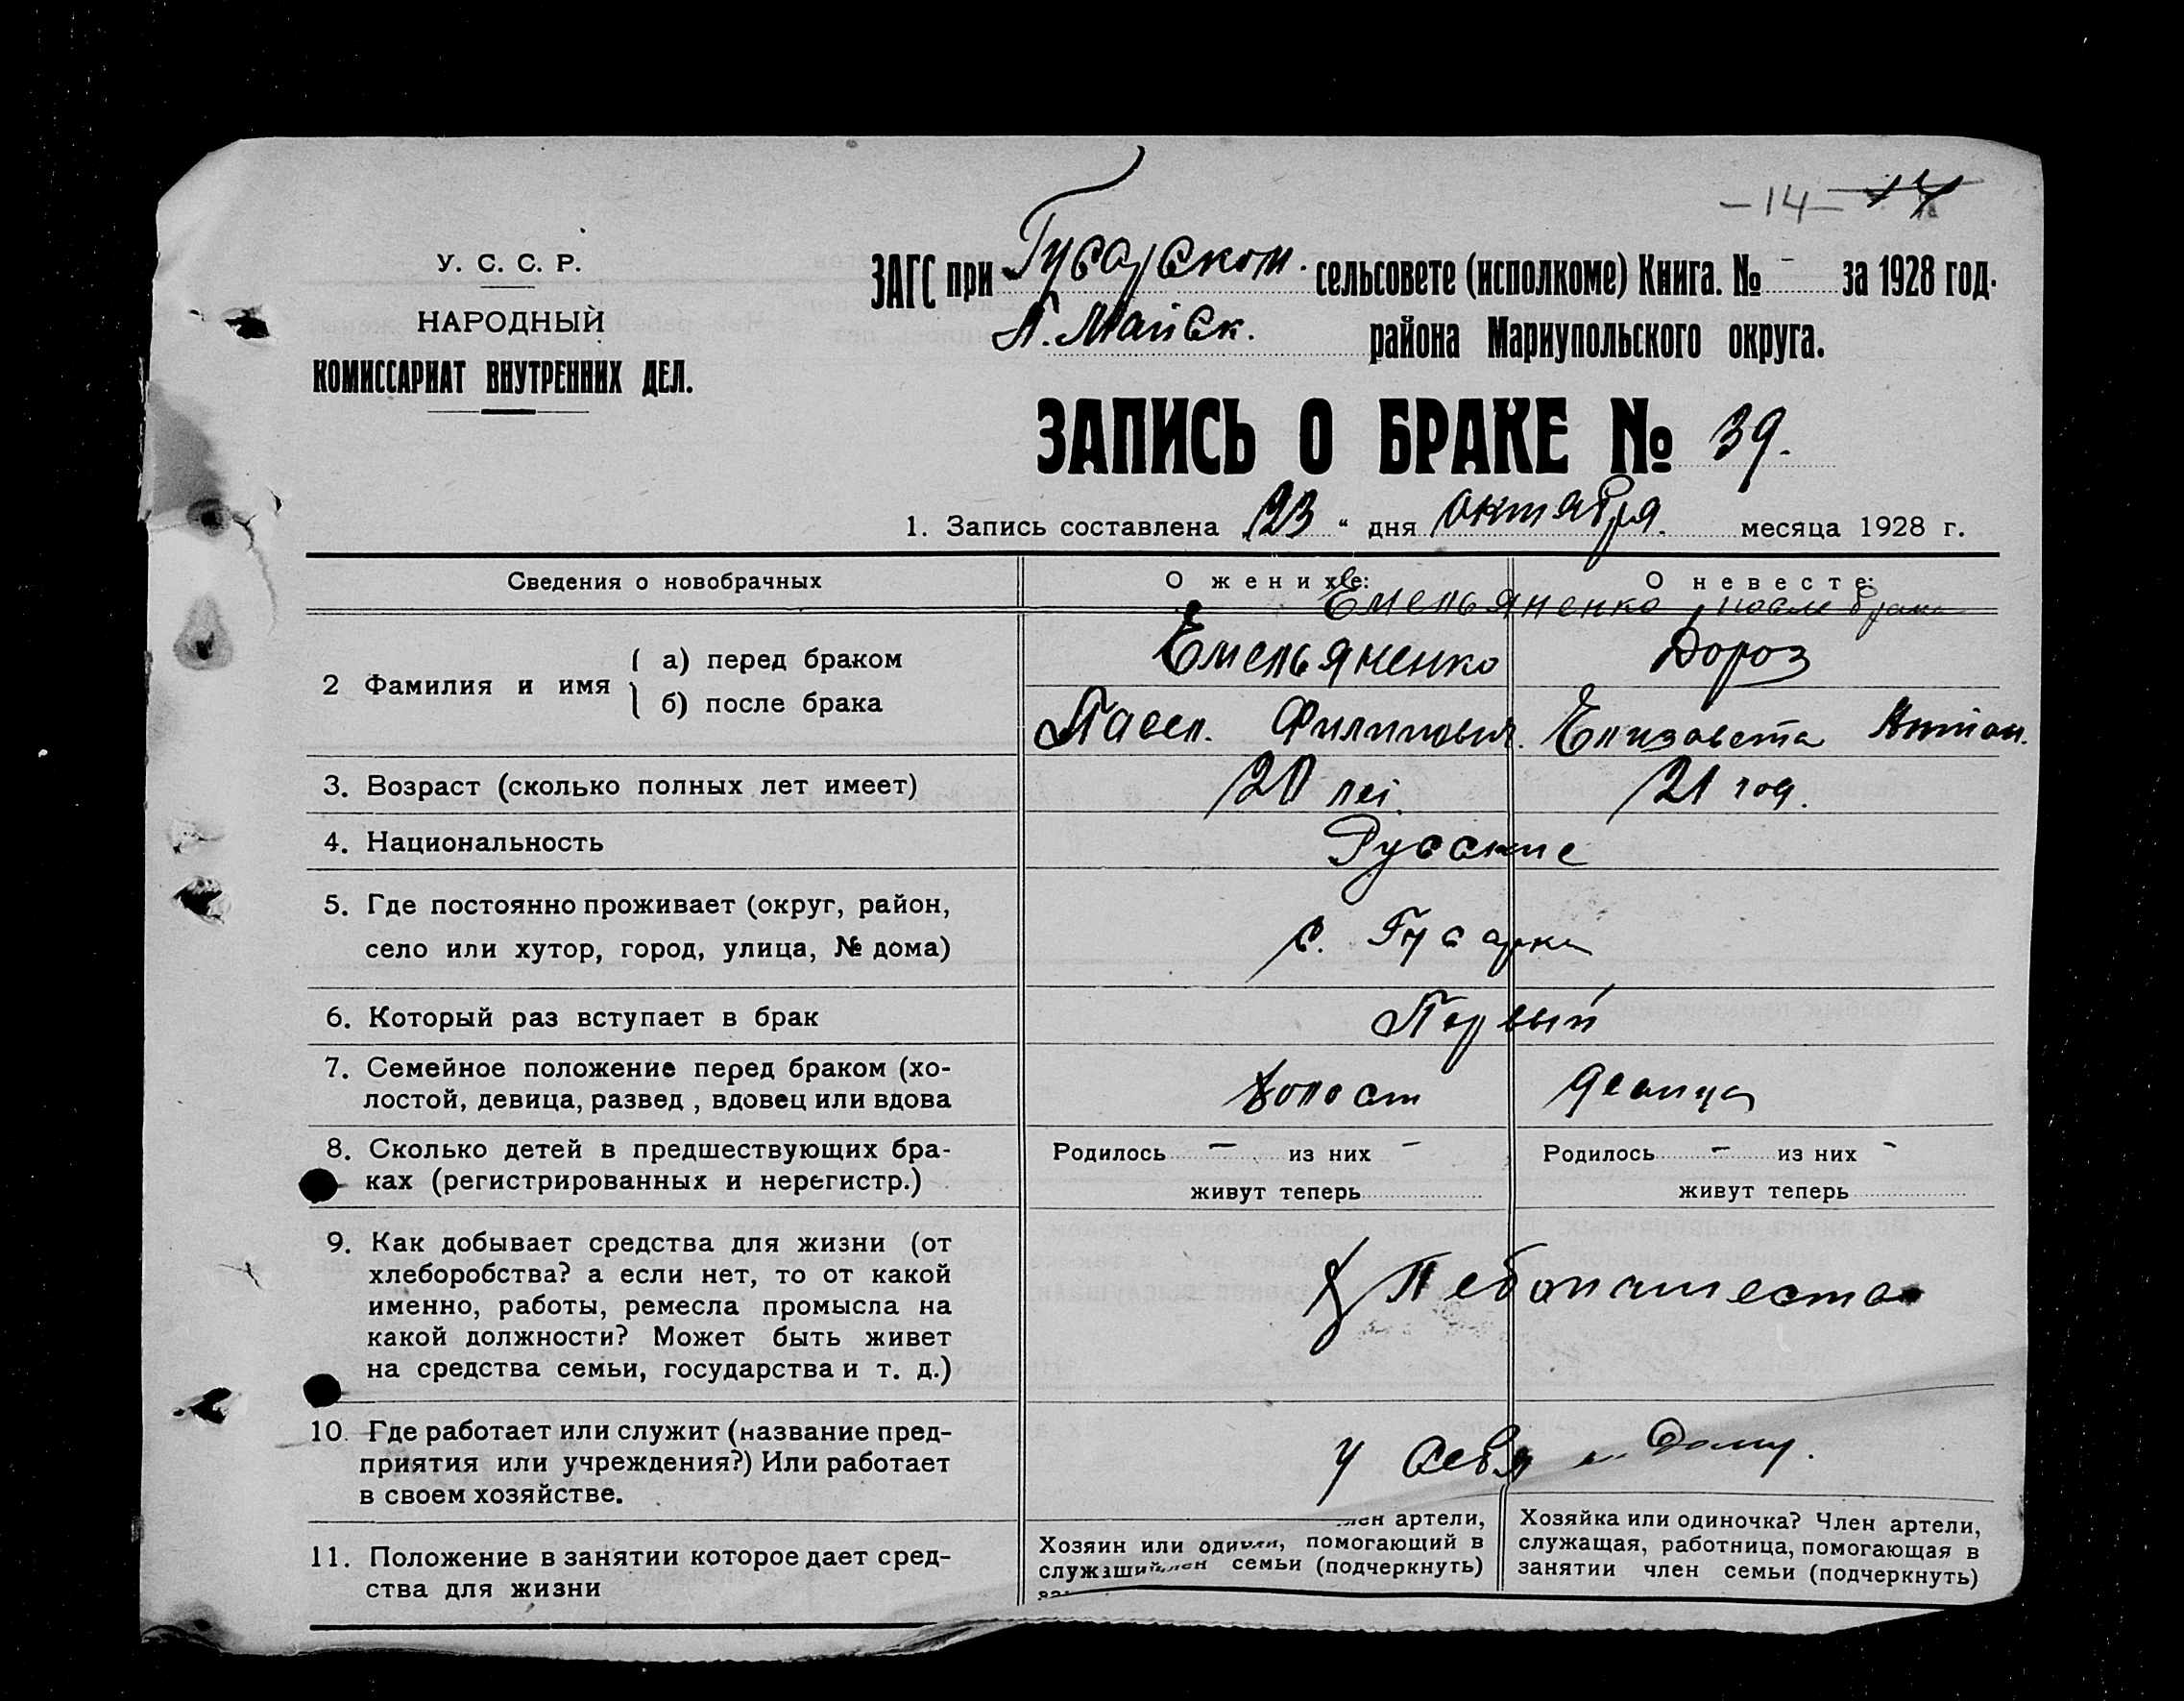 -14- 14
У. С. С. Р.
НАРОДНЫЙ
КОМИССАРИАТ ВНУТРЕННИХ ДЕЛ.
ЗАГС при Гусарском. сельсовете (исполкоме) Книга. № - за 1928 год.
П. Майск. района Мариупольского округа.
ЗАПИСЬ О БРАКЕ № 39.
1. Запись составлена 23 " дня октября. месяца 1928 г.
Сведения о новобрачных О женихе: О невесте:
Емельяненко, после брака
2 Фамилия и имя { а) перед браком Емельяненко Дороз
б) после брака Павел. Филипович. Елизавета Антон.
3. Возраст (сколько полных лет имеет) 20 лет. 21 год.
4. Национальность Русские
5. Где постоянно проживает (округ, район, село или хутор, город, улица, № дома) с. Гусарка
6. Который раз вступает в брак Первый
7. Семейное положение перед браком (холостой, девица, развед , вдовец или вдова Холост девица
8. Сколько детей в предшествующих браках (регистрированных и нерегистр.) Родилось - из них - живут теперь Родилось - из них - живут теперь
9. Как добывает средства для жизни (от
хлеборобства? а если нет, то от какой
именно, работы, ремесла промысла на
какой должности? Может быть живет
на средства семьи, государства и т. д.)
Хлебопашество
10. Где работает или служит (название пред-
приятия или учреждения?) Или работает
в своем хозяйстве.
у себя на дому.
11. Положение в занятии которое дает сред-
ства для жизни
артели,
Хозяин или помогающий в
семьи (подчеркнуть)
Хозяйка или одиночка? Член артели,
служащая, работница, помогающая в
занятии член семьи (подчеркнуть)